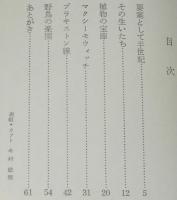 目次
要塞として半世紀 5
その生いたち 12
植物の宝庫 20
マクシーモウィッチ 31
ブラキストン線 42
野鳥の楽園 54
あとがき 61
表紙・カット 木村